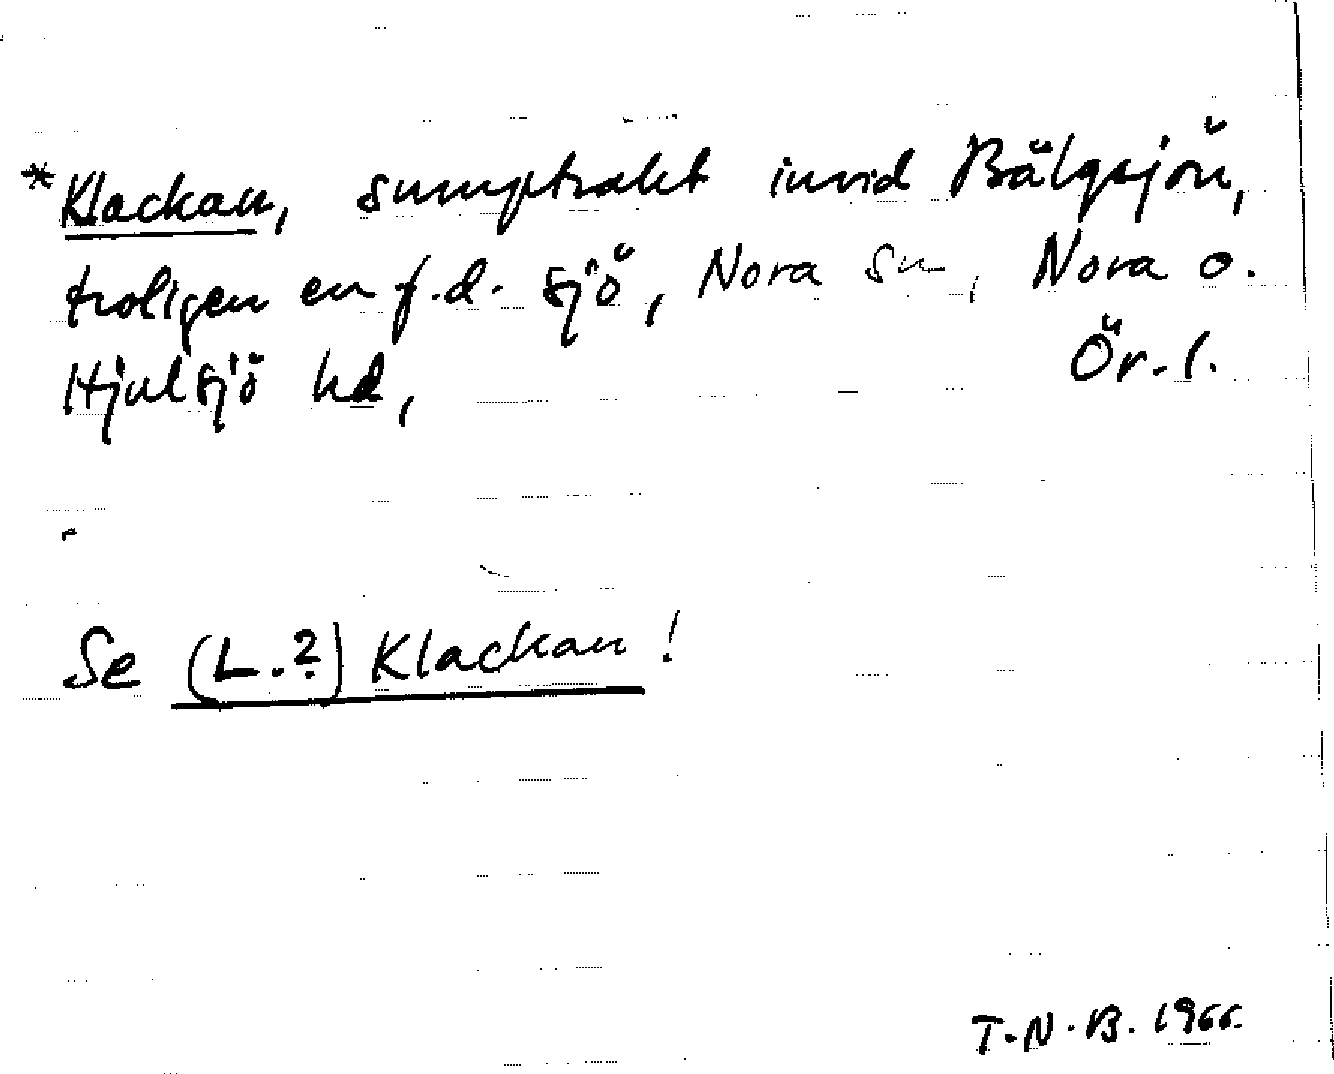 *Klackan, sumptrakt invid Bälgsjön,
troligen en f.d. sjö, Nora sn, Nora o.
Hjulsjö hd, Ör. l.
Se (L.?) Klackan!
T.N.B. 1966.